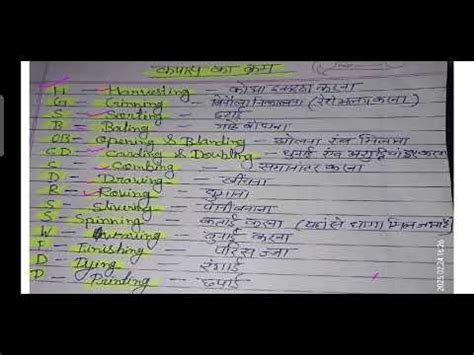 कपास का क्रम
H - Harvesting - कोआ इकट्ठा करना
G - Ginning - बिनौला निकालना (रेशे अलग करना)
S - Sorting - छटाई
B - Baling - गांठे बांधना
OB - Opening & Blanding - खोलना एंव मिलाना
CD - Carding & Doubling - धुनाई एंव
C - Combing - समानांतर करना
D - Drawing - खींचना
R - Roving - घुमाना
S - Slivering - पोनी बनाना
S Spinning - कताई करना (यहां से धागा मिल जाता है)
W - - बुनाई करना
F - Finishing - परिसज्जा
D - Dying - रंगाई
P - Printing - छपाई
2025.02.24 16:26